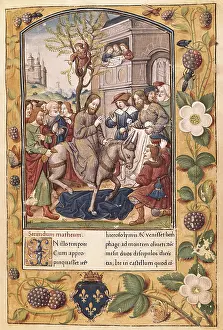 Secundum matheum.
IN illo tempore
Cum appro
pinquasset ies⁹
hierosolymis & venisset beth
phage ad montem oliueti: mi
sit duos discipulos dicens
eis; Ite in castellum quod cō